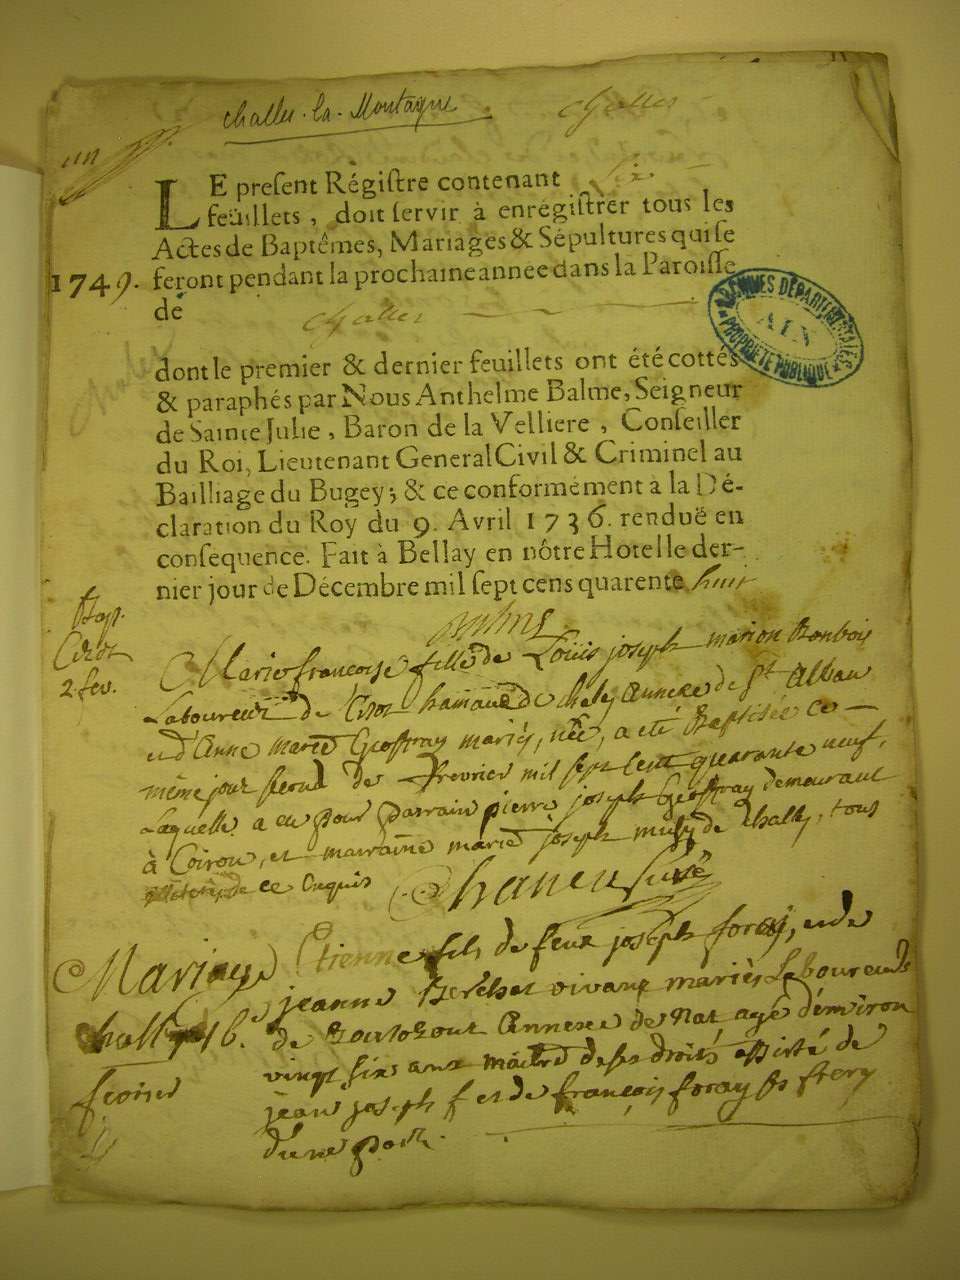 Challes-la-Montagne
Challes
un
LE present Régistre contenant six
feüillets, doit servir à enrégistrer tous les
Actes de Baptêmes, Mariages & Sépultures qui se
1749. feront pendant la prochaine année dans la Paroisse
de
Challes
ARCHIVES DÉPARTEMENTALES
AIN
PROPRIÉTÉ PUBLIQUE
dont le premier & dernier feuillets ont été cottés
& paraphés par Nous Anthelme Balme, Seigneur
de Sainte Julie, Baron de la Velliere, Conseiller
du Roi, Lieutenant General Civil & Criminel au
Bailliage du Bugey; & ce conformément à la Dé-
claration du Roy du 9. Avril 1736. renduë en
consequence. Fait à Bellay en nôtre Hotel le der-
nier jour de Décembre mil sept cens quarente huit
Bapt.
2 fev.
Marie françoise fille de Louis joseph marion
Laboureur de hameau de Annexe de St Alban
et d'Anne marie Geoffray mariés, née, a eté Baptisée ce
même jour second de fevrier mil sept cent quarante neuf,
Laquelle a eu pour parrain pierre joseph Geoffray demeurant
à Coiron, et marraine marie joseph de Challes, tous
de ce Enquis
Mariage
Challes 16.
fevrier
Etienne fils de feux joseph foray, et de
jeanne vivans mariés Laboureurs
de Annexe de Nat agé d'environ
vingt six ans maitre de ses droits assisté de
jean joseph et de françois foray ses freres
d'une part.